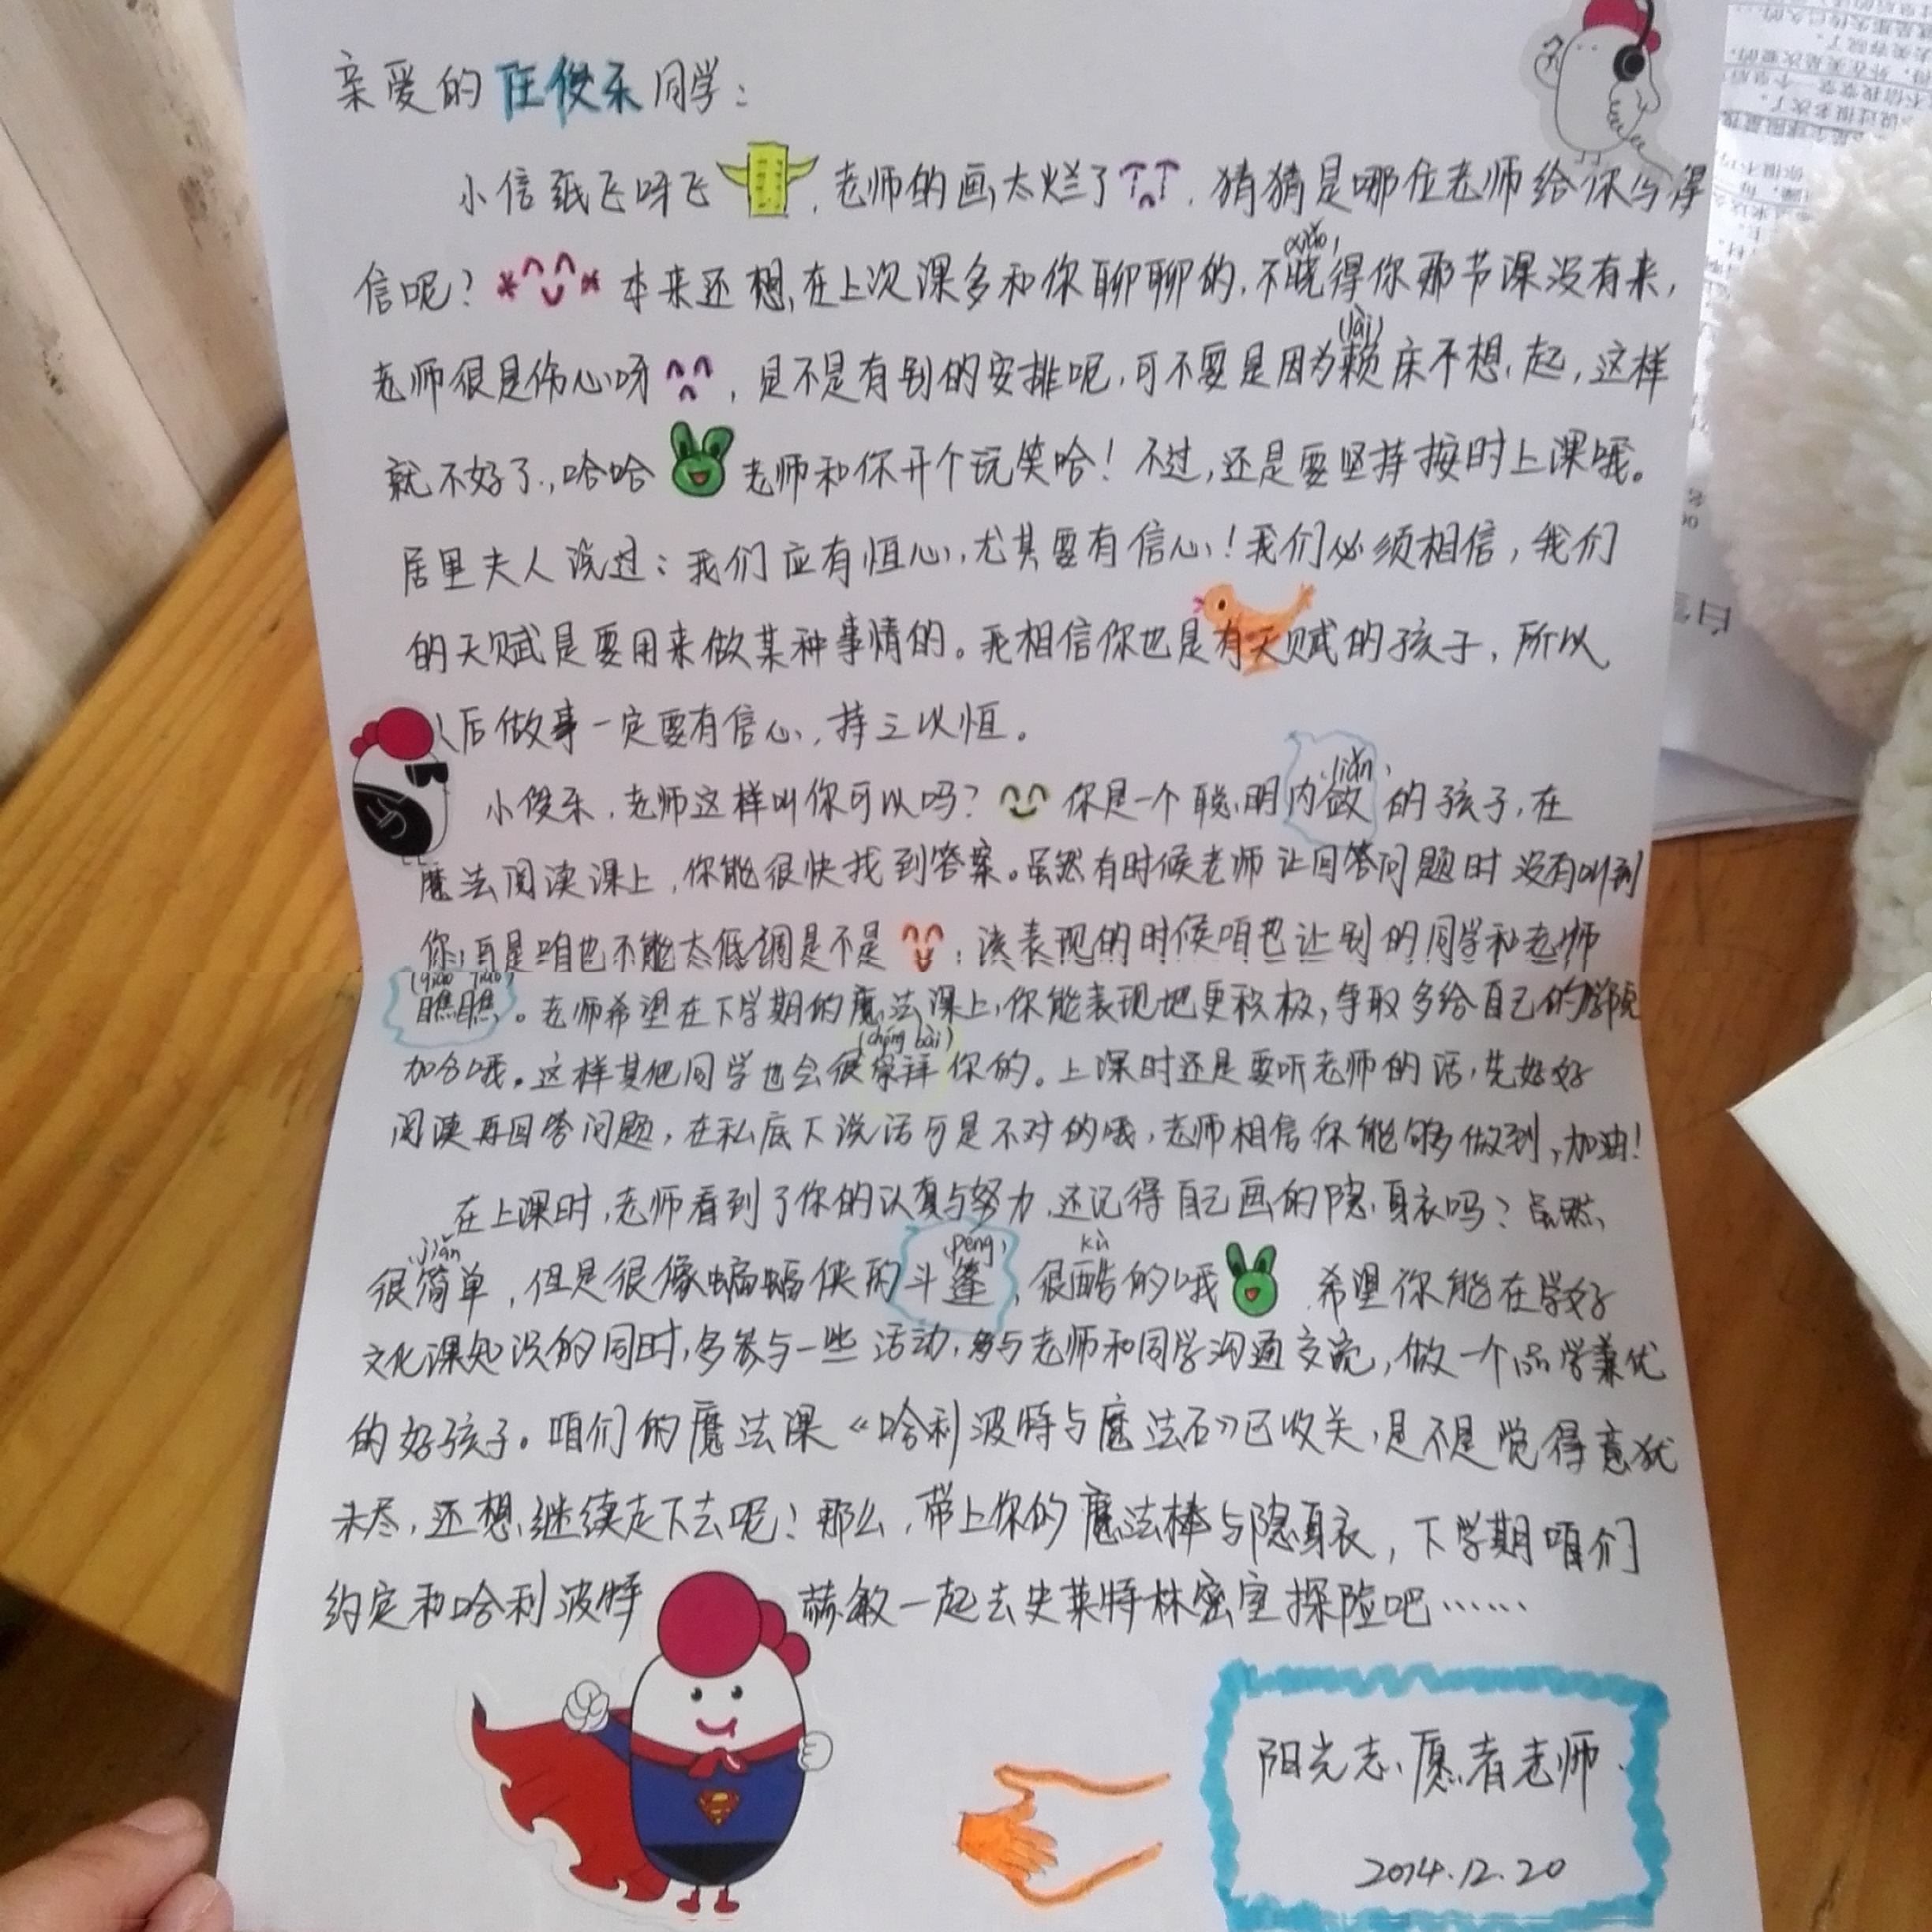 亲爱的汪俊乐同学：
小信纸飞呀飞，老师的画太烂了，猜猜是哪位老师给你写得
信呢？本来还想在上次课多和你聊聊的，不晓(xiǎo)得你那节课没有来，
老师很是伤心呀，是不是有别的安排呢，可不要是因为赖(lài)床不想起，这样
就不好了，哈哈老师和你开个玩笑哈！不过，还是要坚持按时上课哦。
居里夫人说过：我们应有恒心，尤其要有信心！我们必须相信，我们
的天赋是要用来做某种事情的。我相信你也是有天赋的孩子，所以
以后做事一定要有信心，持之以恒。
小俊乐，老师这样叫你可以吗？你是一个聪明内敛(liǎn)的孩子，在
魔法阅读课上，你能很快找到答案。虽然有时候老师让回答问题时没有叫到
你，可是咱也不能太低调是不是，该表现的时候咱也让别的同学和老师
瞧瞧(qiáo qiáo)。老师希望在下学期的魔法课上，你能表现地更积极，争取多给自己的学院
加分哦。这样其他同学也会很崇拜(chóng bài)你的。上课时还是要听老师的话，先好好
阅读再回答问题，在私底下说话可是不对的哦，老师相信你能够做到，加油！
在上课时，老师看到了你的认真与努力，还记得自己画的隐身衣吗？虽然
很简(jiǎn)单，但是很像蝙蝠侠的斗篷(péng)，很酷(kù)的哦希望你能在学好
文化课知识的同时，多参与一些活动，多与老师和同学沟通交流，做一个品学兼优
的好孩子。咱们的魔法课《哈利波特与魔法石》已收关，是不是觉得意犹
未尽，还想继续走下去呢？那么，带上你的魔法棒与隐身衣，下学期咱们
约定和哈利波特赫敏一起去史莱特林密室探险吧……
阳光志愿者老师
2014.12.20